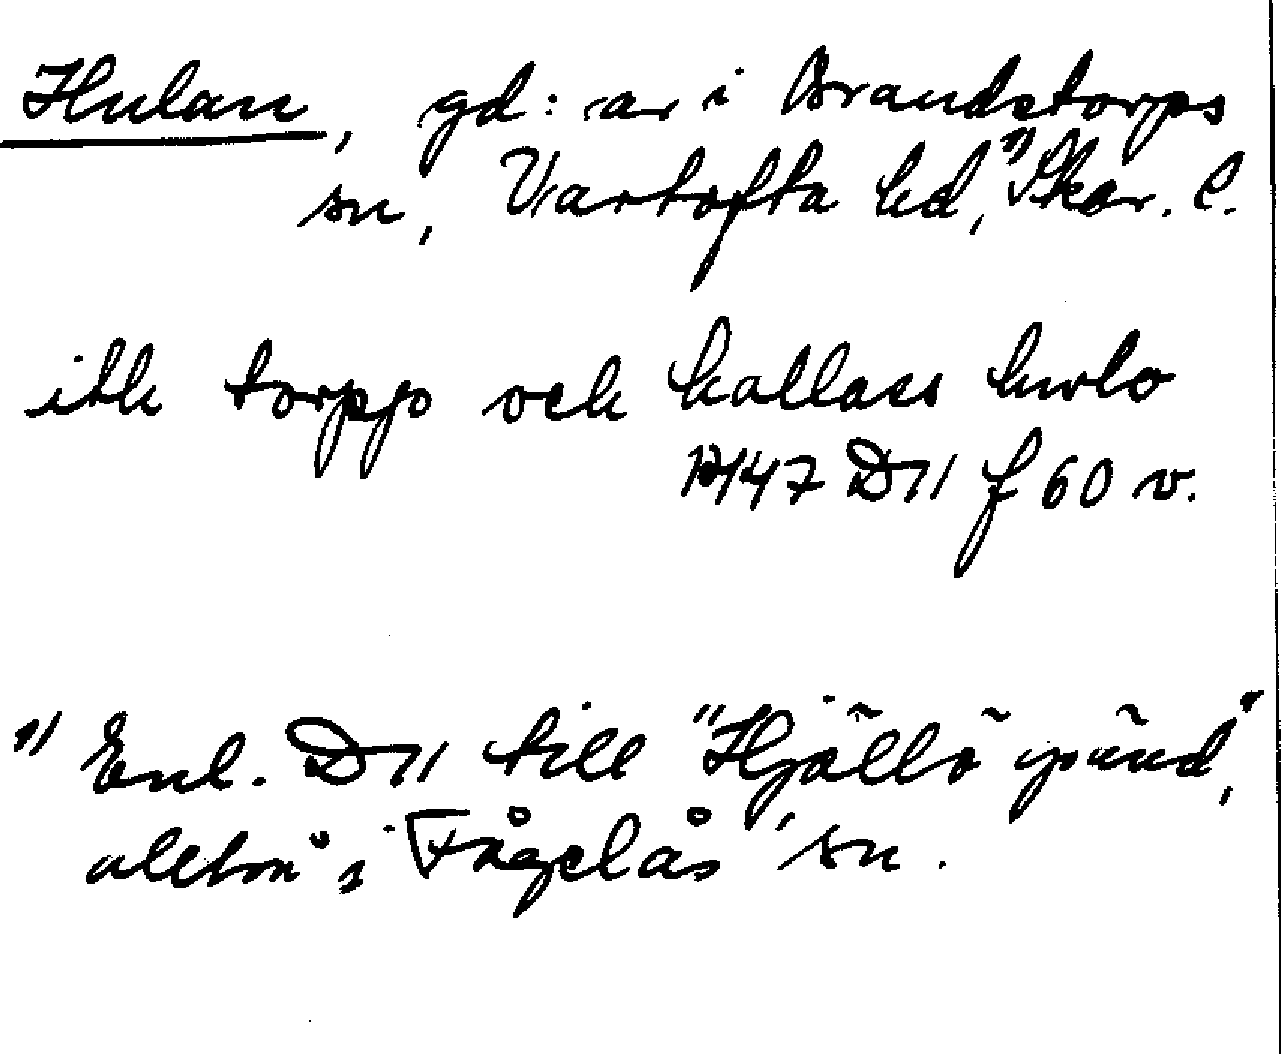 Hulan, gd: ar i Brandstorps
sn, Vartofta hd,¹⁾ Skar. l.
itk torpp och kallass hwlo
1447 D11 f 60 v.
¹⁾ Enl. D11 till "Hjällö pund",
alltså i Fågelås sn.